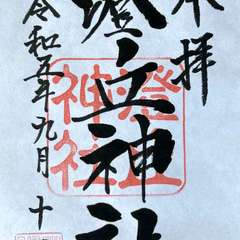 奉拝
燈立神社
令和五年九月十
燈立
神社